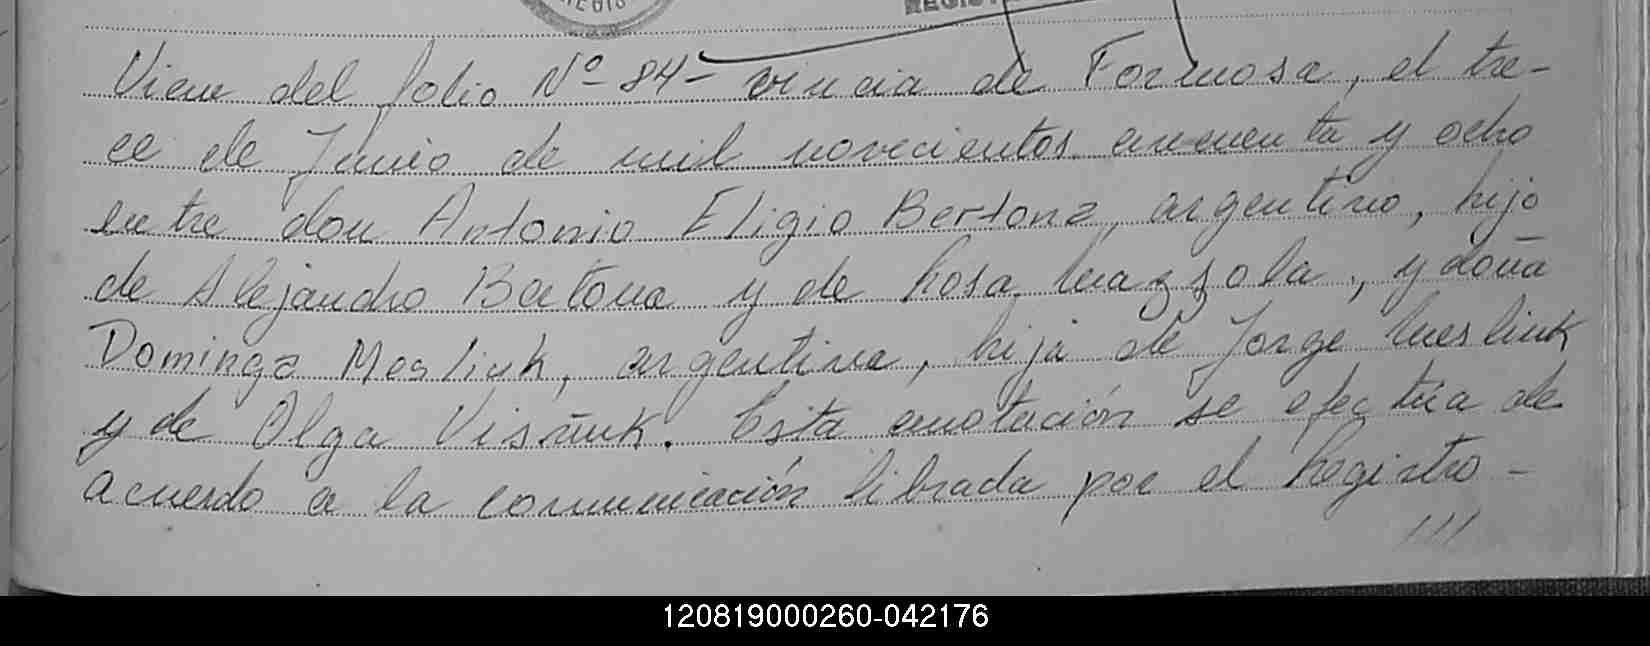 REGIS
Viene del folio Nº 84 - vincia de Formosa, el tre-
ce de Junio de mil novecientos cincuenta y ocho
entre don Antonio Eligio Bertona, argentino, hijo
de Alejandro Bertona y de Rosa Mazzola, y doña
Dominga Mesliuk, argentina, hija de Jorge Mesliuk
y de Olga . Esta anotación se efectúa de
acuerdo a la comunicación librada por el Registro -
///
120819000260-042176